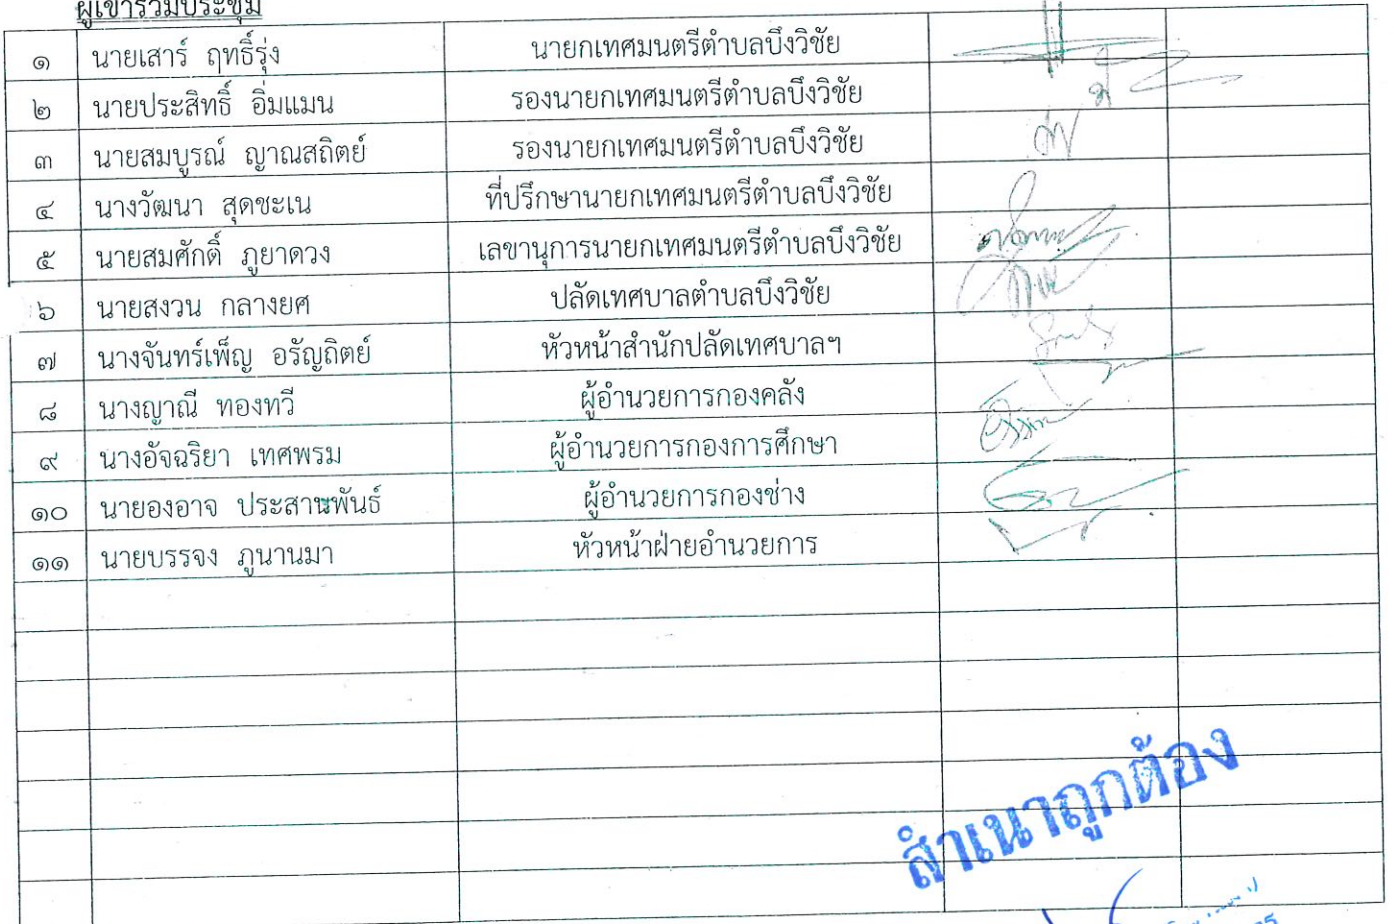 ผู้เข้าร่วมประชุม
๑ นายเสาร์ ฤทธิ์รุ่ง นายกเทศมนตรีตำบลบึงวิชัย
๒ นายประสิทธิ์ อิ่มแมน รองนายกเทศมนตรีตำบลบึงวิชัย
๓ นายสมบูรณ์ ญาณสถิตย์ รองนายกเทศมนตรีตำบลบึงวิชัย
๔ นางวัฒนา สุดชะเน ที่ปรึกษานายกเทศมนตรีตำบลบึงวิชัย
๕ นายสมศักดิ์ ภูยาดวง เลขานุการนายกเทศมนตรีตำบลบึงวิชัย
๖ นายสงวน กลางยศ ปลัดเทศบาลตำบลบึงวิชัย
๗ นางจันทร์เพ็ญ อรัญถิตย์ หัวหน้าสำนักปลัดเทศบาลฯ
๘ นางญาณี ทองทวี ผู้อำนวยการกองคลัง
๙ นางอัจฉริยา เทศพรม ผู้อำนวยการกองการศึกษา
๑๐ นายองอาจ ประสานพันธ์ ผู้อำนวยการกองช่าง
๑๑ นายบรรจง ภูนานมา หัวหน้าฝ่ายอำนวยการ
สำเนาถูกต้อง